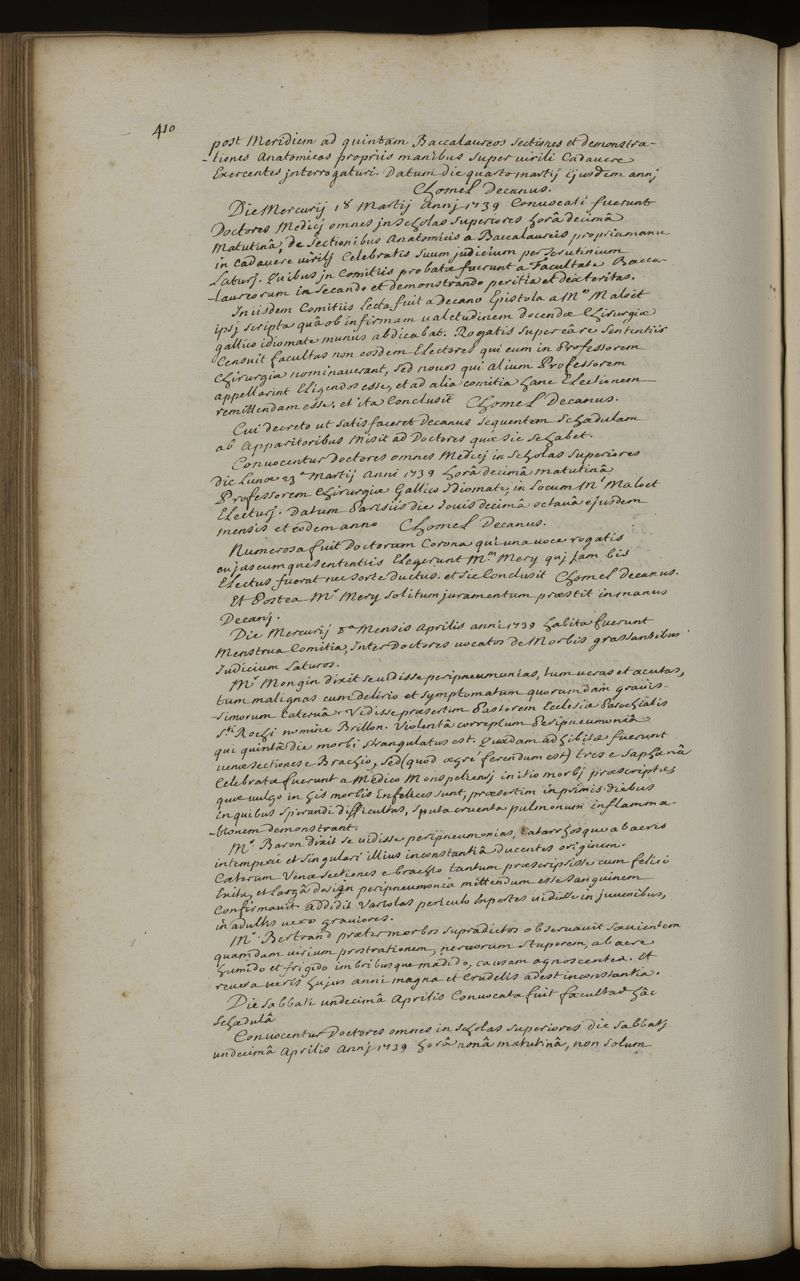 410
post Meridiem ad quintam Baccalaureos Sectiones et demonstra-
-tiones Anatomicas propriis manibus super virili Cadavere
Exercentes jnterrogaturi. Datum die quarto martij Ejusdem annj
Chomel Decanus.
Die Mercurij 18 Martij Annj 1739 Convocati fuerunt
Doctores Medicj omnes jn scholas Superiores horâ decimâ
Matutinâ, de Sectionibus Anatomicis a Baccalaureis propria manu
in Cadavere virilj Celebratis Suum judicium per Scrutinium
Laturj. Quibus jn Comitiis probata fuerunt a Facultate Bacca-
-laureorum in Secando et demonstrando peritia et dexteritas.
In iisdem Comitiis Lecta fuit a Decano Epistola a Mo. Maloet
ipsj scripta quâ ob infirmam valetudinem docendæ Chirurgiæ
gallico idiomate munus abdicabat. Rogatis Super eâ re Sententiis
Censuit facultas non eosdem Electores qui eum in Professorem
Chirurgiæ nominaverant, Sed novos qui alium Professorem
appellarint Eligendos esse, et ad alia comitia hanc Electionem
remittendam esse, et ita Conclusit Chomel Decanus.
Cui decreto ut Satisfaceret Decanus Sequentem Schædulam
ab Apparitoribus Misit ad Doctores quæ Sic se habet.
Convocentur Doctores omnes Medicj in Scholas Superiores
die Lunæ 23a Martij Anni 1739 horâ decimâ matutinâ
Professorem Chirurgiæ Gallico Idiomate, in Locum Mi. Maloet
Electurj. Datum Parisiis die Jovis decimâ octavâ ejusdem
mensis et eodem anno Chomel Decanus.
Numerosa fuit Doctorum Corona qui una voce rogatis
cujascumque Sententiis Elegerunt Mum Mery quj jam bis
Electus fuerat nec Sorte Ductus. et Sic Conclusit Chomel Decanus.
Et Postea Mr Mery Solitum juramentum præstit in manus
Decanj.
Die Mercurij 8a Mensis Aprilis anni 1739 habita fuerunt
Menstrua Comitia, Inter Doctores vocatos de Morbis grassantibus
Judicium Laturos.
Mr. Mongin dixit se vidisse peripneumonias, tum veras et acutas,
tum malignas cum delirio et Symptomatum quorumdam gravis-
-simorum Catervâ. Vidisse præsertim Pastorem Ecclesiæ Parochialis
Sti Rochi nomine Brillon. Violentâ correptum Peripneumoniâ
qui quintâ die morbi strangulatus est. Quædam adhibitæ fuerunt
venæ sectiones e Brachio, Sed (quod ægre ferendum est) tres e Saphenâ
Celebratæ fuerunt a Medico Monspeliensj initio morbj præscriptæ
quæ vulgo in his morbis Enfelices sunt, præsertim in primis diebus
in quibus Spirandi difficultas, Sputa cruenta pulmonum inflamma-
-tionem demonstrant.
Mr. Baron dixit se vidisse peripneumonias, Catarrhosque ab aeris
intemperie et singulari illius inconstantiâ Ducentes originem.
Cæterum Venæ Sectiones e brachio tantum præscripsisse cum felici
Exitu, et Largâ dosi in peripneumonia mittendum esse Sanguinem
Confirmavit. addidit Variolas periculo Expertes vidisse in juvenibus,
in adultis vero graviores.
Mr. Bertrand præter morbos supradictos observavit Sævientem
quamdam virium prostrationem, nervorum Stuporem, ab aere
humido et frigido imbribusque madido, causam agnoscentes. Et
revera veris hujus anni magna et Crudelis adest inconstantia.
Die Sabbati undecimâ Aprilis Convocata fuit facultas hâc
Schædulâ
Convocentur Doctores omnes in scholas superiores die Sabbatj
undecimâ Aprilis Annj 1739 horâ nonâ matutinâ, non Solum